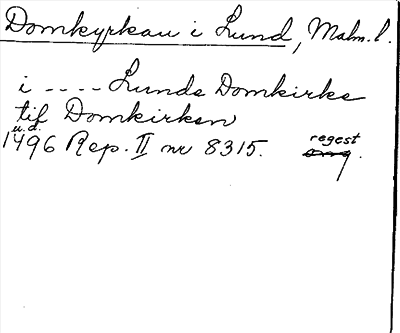 Domkyrkan i Lund, Malm. l.
i ---- Lunds Domkirke
til Domkirken
u.d.
1496 Rep. II nr 8315. regest
omg.